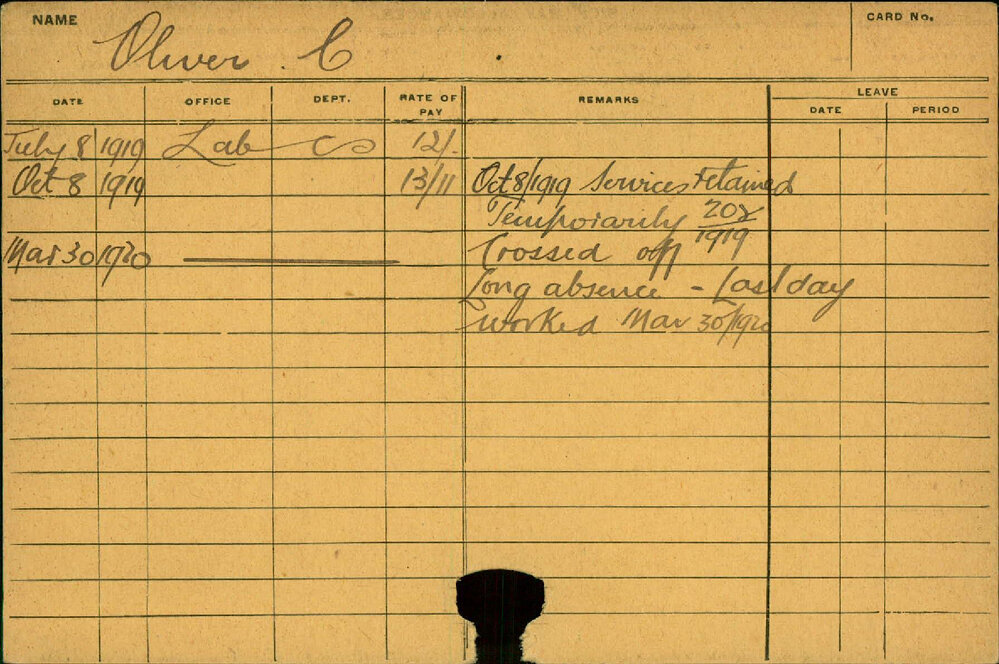 NAME Oliver C CARD No.
DATE OFFICE DEPT. RATE OF PAY REMARKS LEAVE
DATE PERIOD
July 8 1919 Lab 12/.
Oct 8 1919 13/11 Oct 8/1919 Services retained
Temporarily 208/1919
Mar 30 1920 Crossed off
Long absence - Last day
worked Mar 30/1920